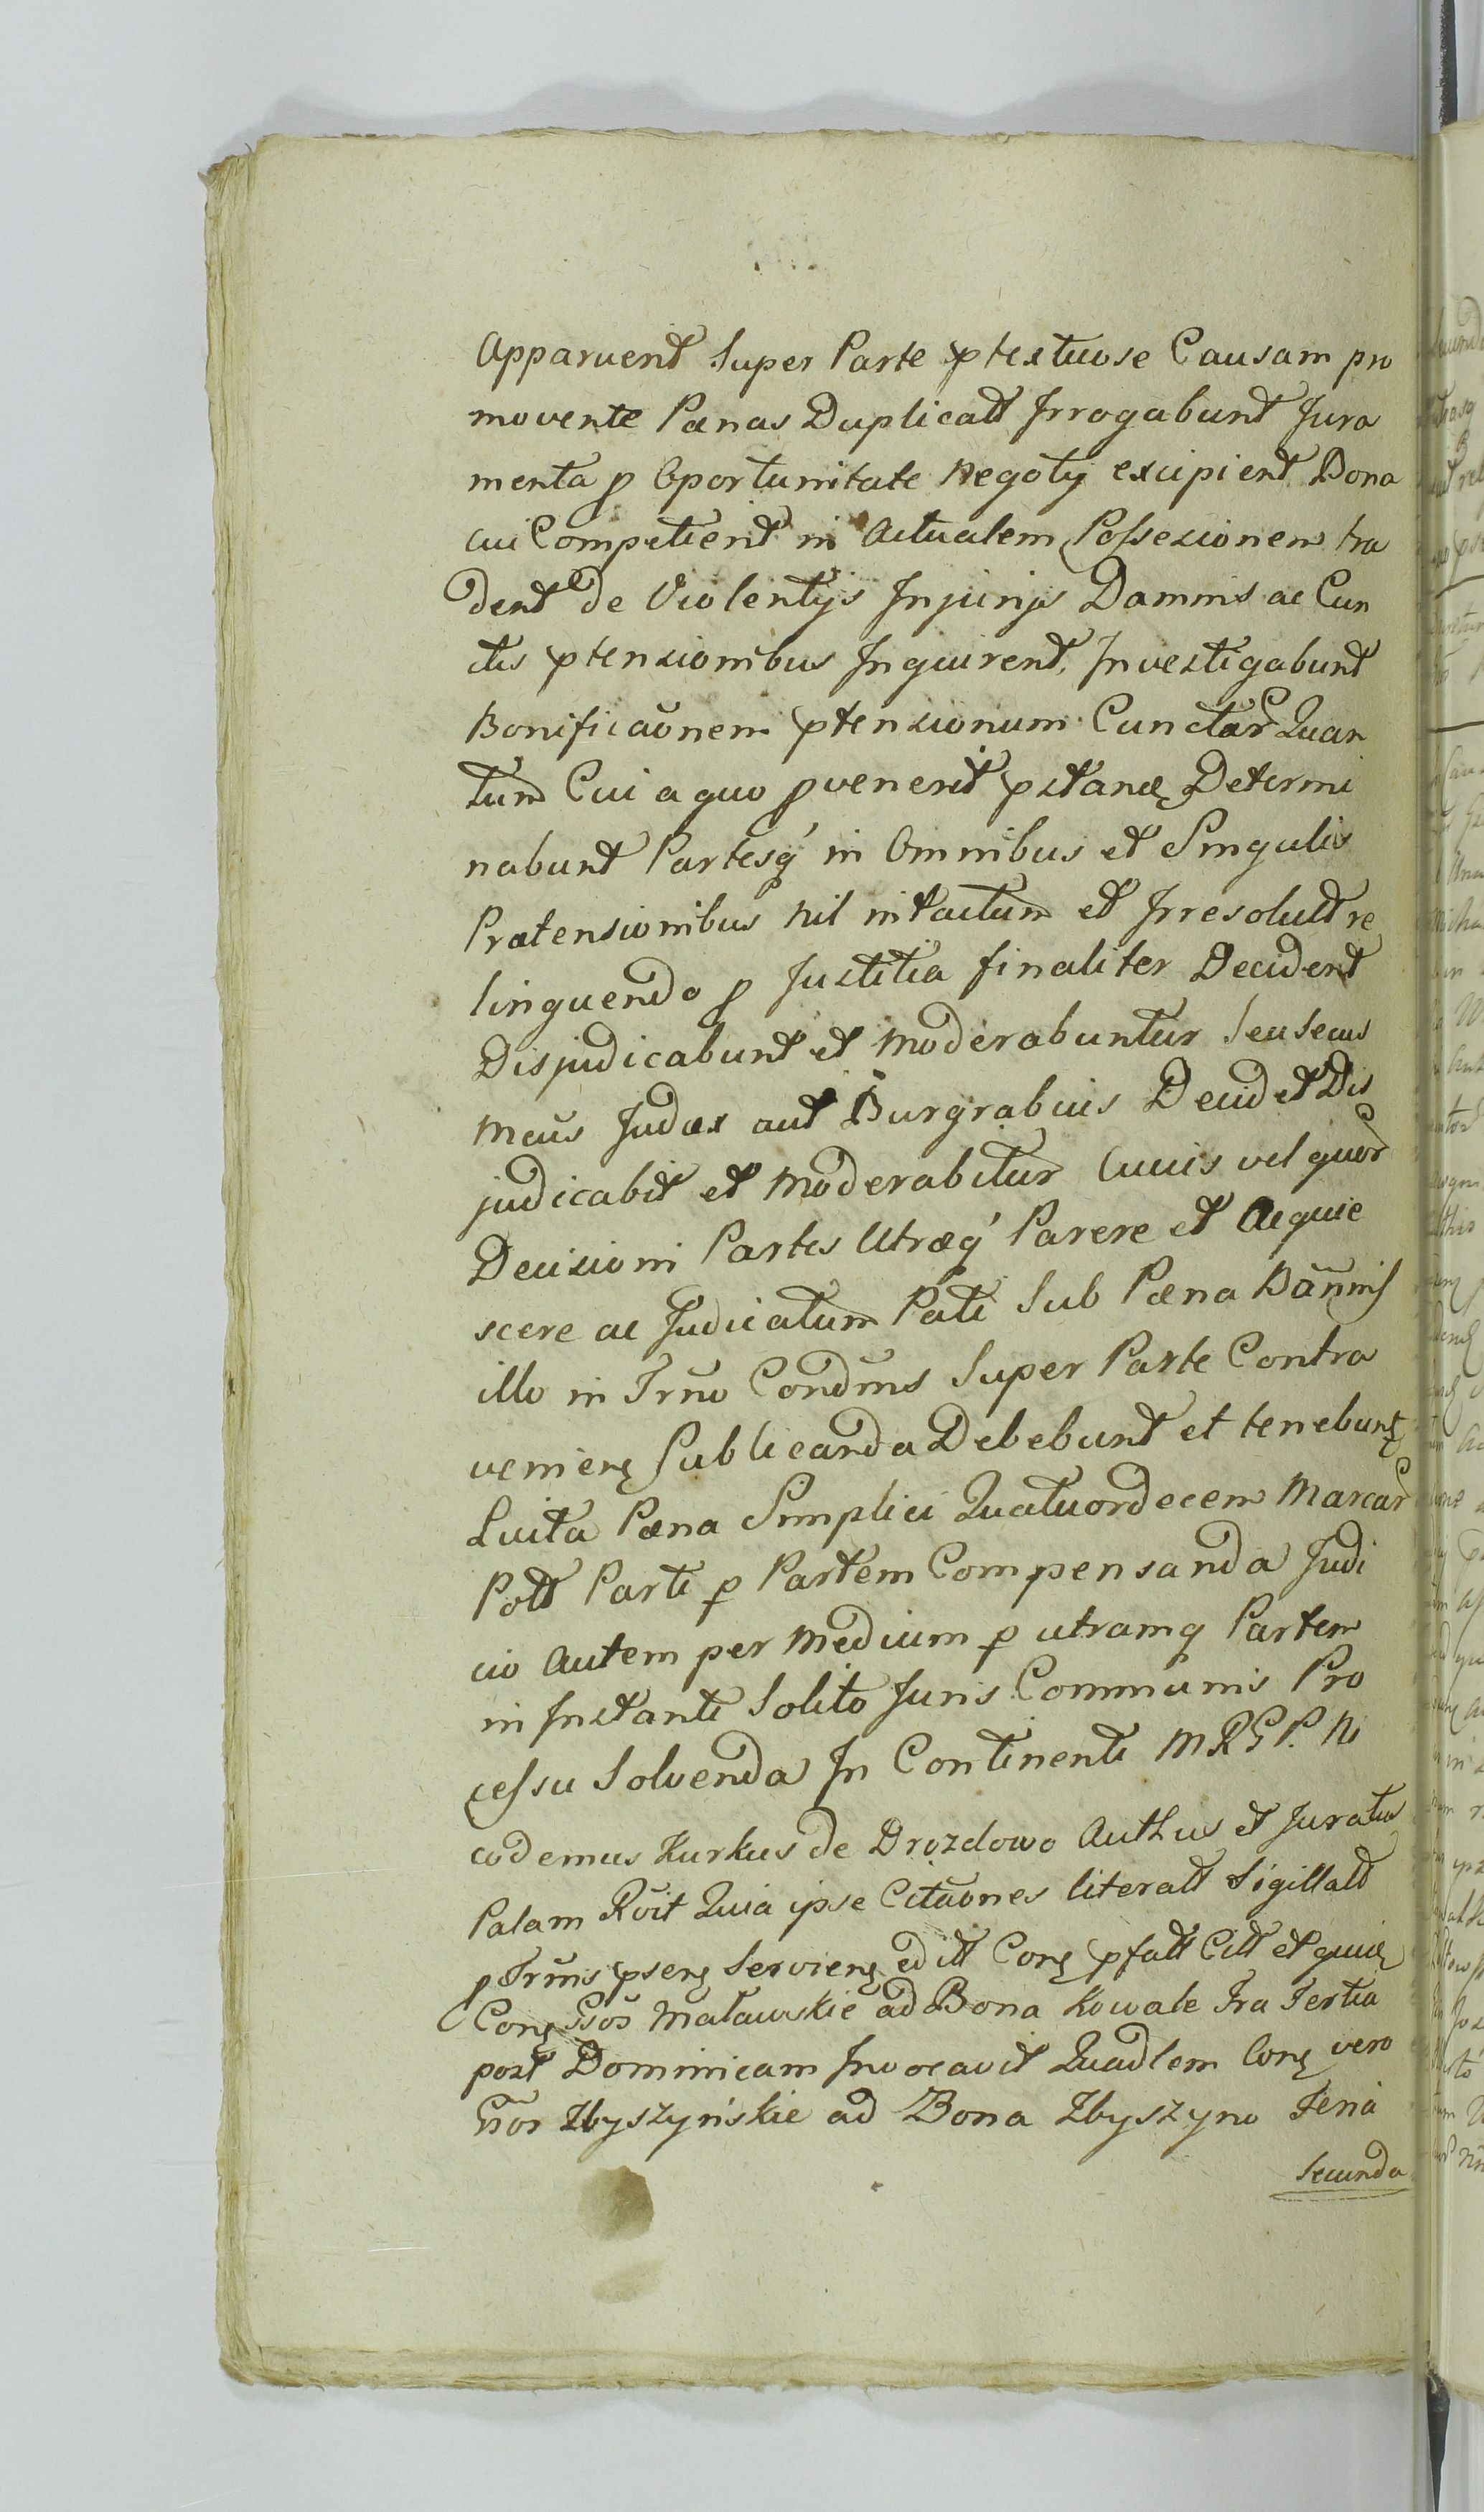 Apparuent Super Parte ptextuose Causam pro
movente Pænas Duplicatt Irrogabunt Jura
menta p Oportunitate Negoty excipient Bona
cui Competient in Actualem Possesionem tra
dent de Violentijs Injurijs Damnis ac Cun
ctis ptensionibus Inquirent, Investigabunt
Bonificaõnem ptensionum Cunctar Quan
tum Cui a quo pvenerit pstand Determi
nabunt Partesq in Omnibus et Singulis
Prætensionibus Nil intactum et Irresolutt re
linquendo p Justitia finaliter Decident
Disjudicabunt et Moderabuntur Seu Secus
Meus Judex aut Burgrabius Decidet Dis
judicabit et Moderabitur Cuius vel quor
Decisioni Partes Utræq Parere et Acquie
scere ac Judicatum Pati Sub Pæna Bannis
illo in Trno Condmns Super Parte Contra
venien Publicanda Debebunt et tenebunt
Luita Pæna Simplici Quatuordecem Marcar
Pott Parti p Partem Compensanda Judi
cio Autem per Medium p utramq Partem
in Instanti Solito Juris Communis Pro
cessu Solvenda In Continenti M R G P. Ni
codemus Kurkus de Drozdowo Authus et Juratus
Palam Rõit Quia ipse Citaõnes literatt Sigillatt
p Trmis psen Servien editt Con pfatt Citt et quid
Con Gsos Maławskie ad Bona Kowale Fra Tertia
post Dominicam Invocavit Quadlem Con vero
Gsos Zbyszyńskie ad Bona Zbyszyno Feria
Secunda